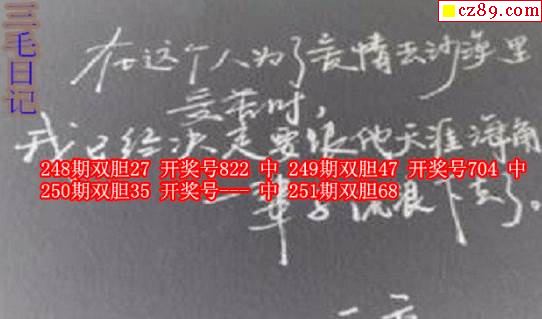 cz89.com
三毛日记
在这个人为了爱情去沙漠里
受苦时,
我已经决定要跟他天涯海角
248期双胆27 开奖号822 中 249期双胆47 开奖号704 中
250期双胆35 开奖号--- 中 251期双胆68
一辈子流浪下去了。